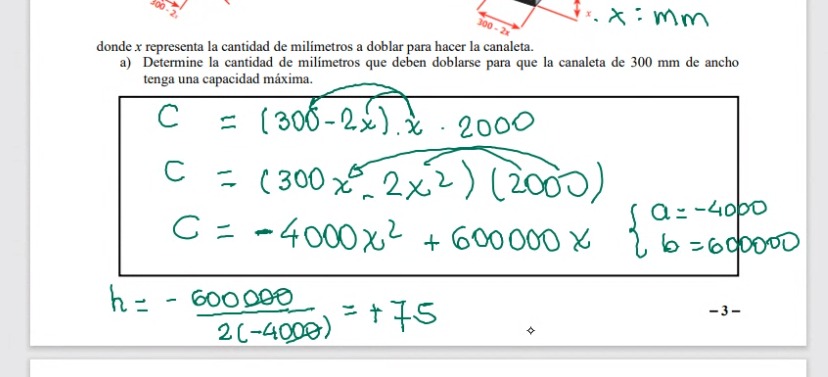 300 - 2x
300 - 2x
x
. x : mm
donde x representa la cantidad de milímetros a doblar para hacer la canaleta.
a) Determine la cantidad de milímetros que deben doblarse para que la canaleta de 300 mm de ancho
tenga una capacidad máxima.
C = (300-2x).x . 2000
C = (300x - 2x²) (2000)
C = -4000x² + 600000x
{ a = -4000
b = 600000
h = - 600000 / 2(-4000) = +75
– 3 –